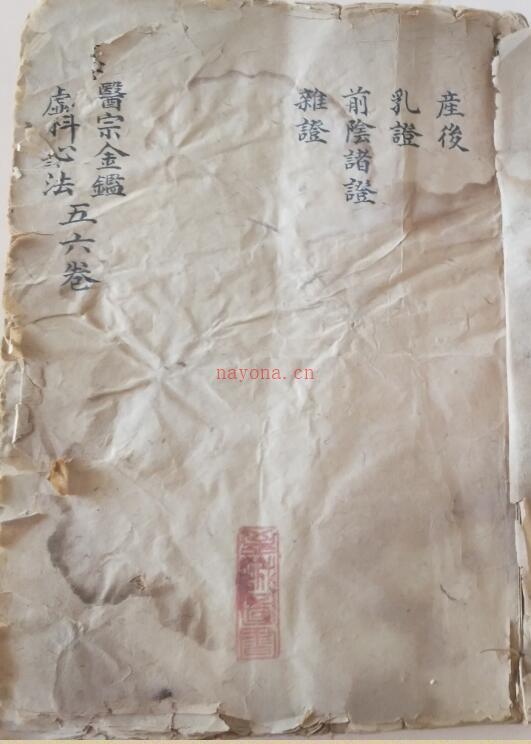 産後
乳證
前陰諸證
雜證
醫宗金鑑
虛科心法 五六卷
nayona.cn